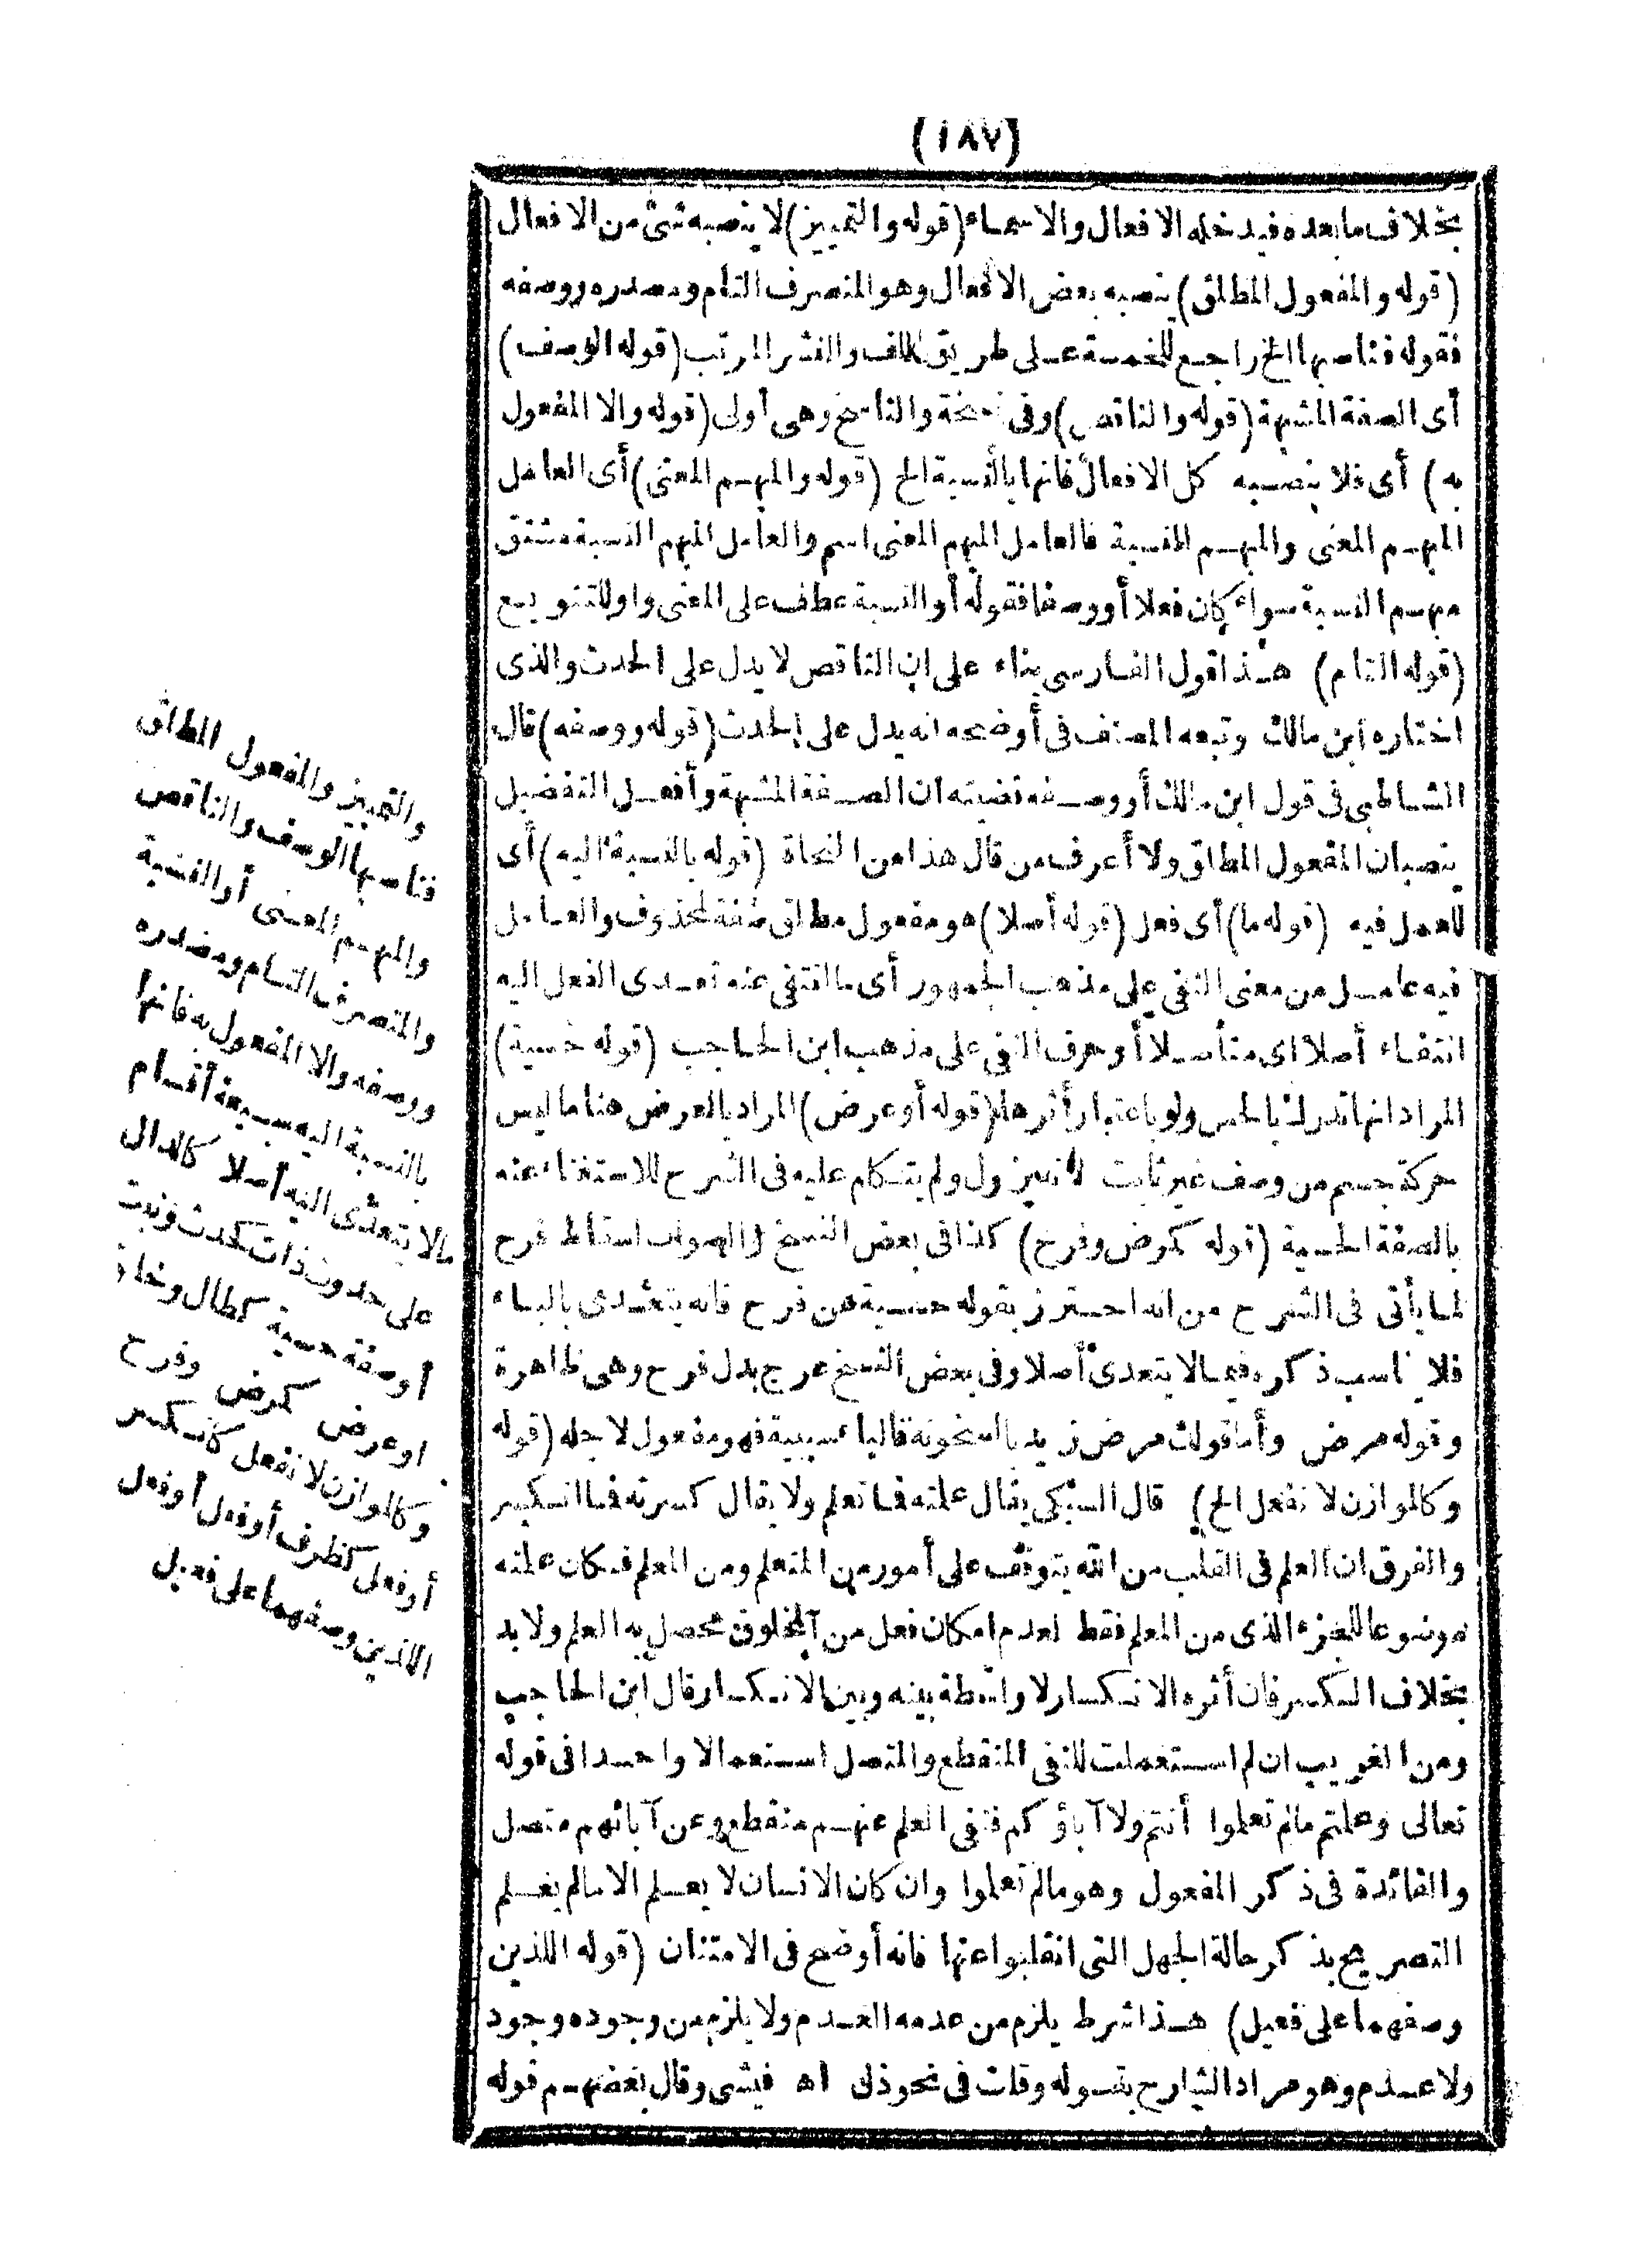 (١٨٧)
بخلاف ما بعده فيدخله الافعال والاسماء (قوله والتمييز) لا ينصبه شئ من الافعال
(قوله والمفعول المطلق) ينصبه بعض الافعال وهو المتصرف التام ومصدره ووصفه
فقوله فناصبها الخ راجع للخمسة على طريق اللف والنشر المرتب (قوله الوصف)
أى الصفة المشبهة (قوله والناقص) وفى نسخة والناسخ وهى أولى (قوله والا المفعول
به) أى فلا ينصبه كل الافعال فانها بالنسبة الخ (قوله والمبهم المعنى) أى العامل
المبهم المعنى والمبهم النسبة فالعامل المبهم المعنى اسم والعامل المبهم النسبة مشتق
مبهم النسبة سواء كان فعلا أو وصفا فقوله أو النسبة عطف على المعنى واو للتنويع
(قوله التام) هذا قول الفارسى بناء على ان الناقص لا يدل على الحدث والذى
اختاره ابن مالك وتبعه المصنف فى أوضحه انه يدل على الحدث (قوله ووصفه) قال
الشاطبى فى قول ابن مالك أو وصف قضيته ان الصفة المشبهة وأفعل التفضيل
ينصبان المفعول المطلق ولا أعرف من قال هذا من النحاة (قوله بالنسبة اليه) أى
للعمل فيه (قوله ما) أى فعل (قوله أصلا) هو مفعول مطلق صفة لمحذوف والعامل
فيه عامل من معنى النفى على مذهب الجمهور أى ما انتفى عنه تعدى الفعل اليه
انتفاء أصلا اى متأصلا أو حرف النفى على مذهب ابن الحاجب (قوله حسية)
المراد انها تدرك بالحس ولو باعتبار أثرها (قوله أو عرض) المراد بالعرض هنا ما ليس
حركة جسم من وصف غير ثابت لانه يزول ولم يتكلم عليه فى الشرح للاستغناء عنه
بالصفة الحسية (قوله كمرض وفرح) كذا فى بعض النسخ والصواب اسقاط فرح
لما يأتى فى الشرح من انه احترز بقوله حسية من فرح فانه يتعدى بالباء
فلا يناسب ذكره فيما لا يتعدى أصلا وفى بعض النسخ عرج بدل فرح وهى ظاهرة
وقوله مرض وأما قولك مرض زيد بالسخونة فالباء سببية فهو مفعول لاجله (قوله
وكالموازن لانفعل الخ) قال السبكى يقال علمته فما تعلم ولا يقال كسرته فما انكسر
والفرق ان العلم فى القلب من الله يتوقف على أمور من المتعلم ومن المعلم فكان علمته
موضوعا للجزء الذى من المعلم فقط لعدم امكان فعل من المخلوق يحصل به العلم ولا بد
بخلاف الكسر فان أثره الانكسار لا واسطة بينه وبين الانكسار قال ابن الحاجب
ومن الغريب ان لم استعملت للنفى المنقطع والمتصل استعمالا واحدا فى قوله
تعالى وعلمتم مالم تعلموا أنتم ولا آباؤكم فنفى العلم عنهم منقطع وعن آبائهم متصل
والفائدة فى ذكر المفعول وهو مالم تعلموا وان كان الانسان لا يعلم الا مالم يعلم
التصريح بذكر حالة الجهل التى انقلبوا عنها فانه أوضح فى الامتنان (قوله اللذين
وصفهما على فعيل) هذا شرط يلزم من عدمه العدم ولا يلزم من وجوده وجود
ولا عدم وهو مراد الشارح بقوله وقلت فى نحو ذلك اه فيشى وقال بعضهم قوله
والتمييز والمفعول المطلق
فناصبها الوصف والناقص
والمبهم المعنى أو النسبة
والمتصرف التام ومصدره
ووصفه والا المفعول به فانها
بالنسبة اليه سبعة أقسام
مالا يتعدى اليه أصلا كالدال
على حدوث ذات كحدث ونبت
أو صفة حسية كطال وخلق
أو عرض كمرض وفرح
وكالموازن لانفعل كانكسر
أو فعل كظرف أو فعل أو فعل
اللذين وصفهما على فعيل